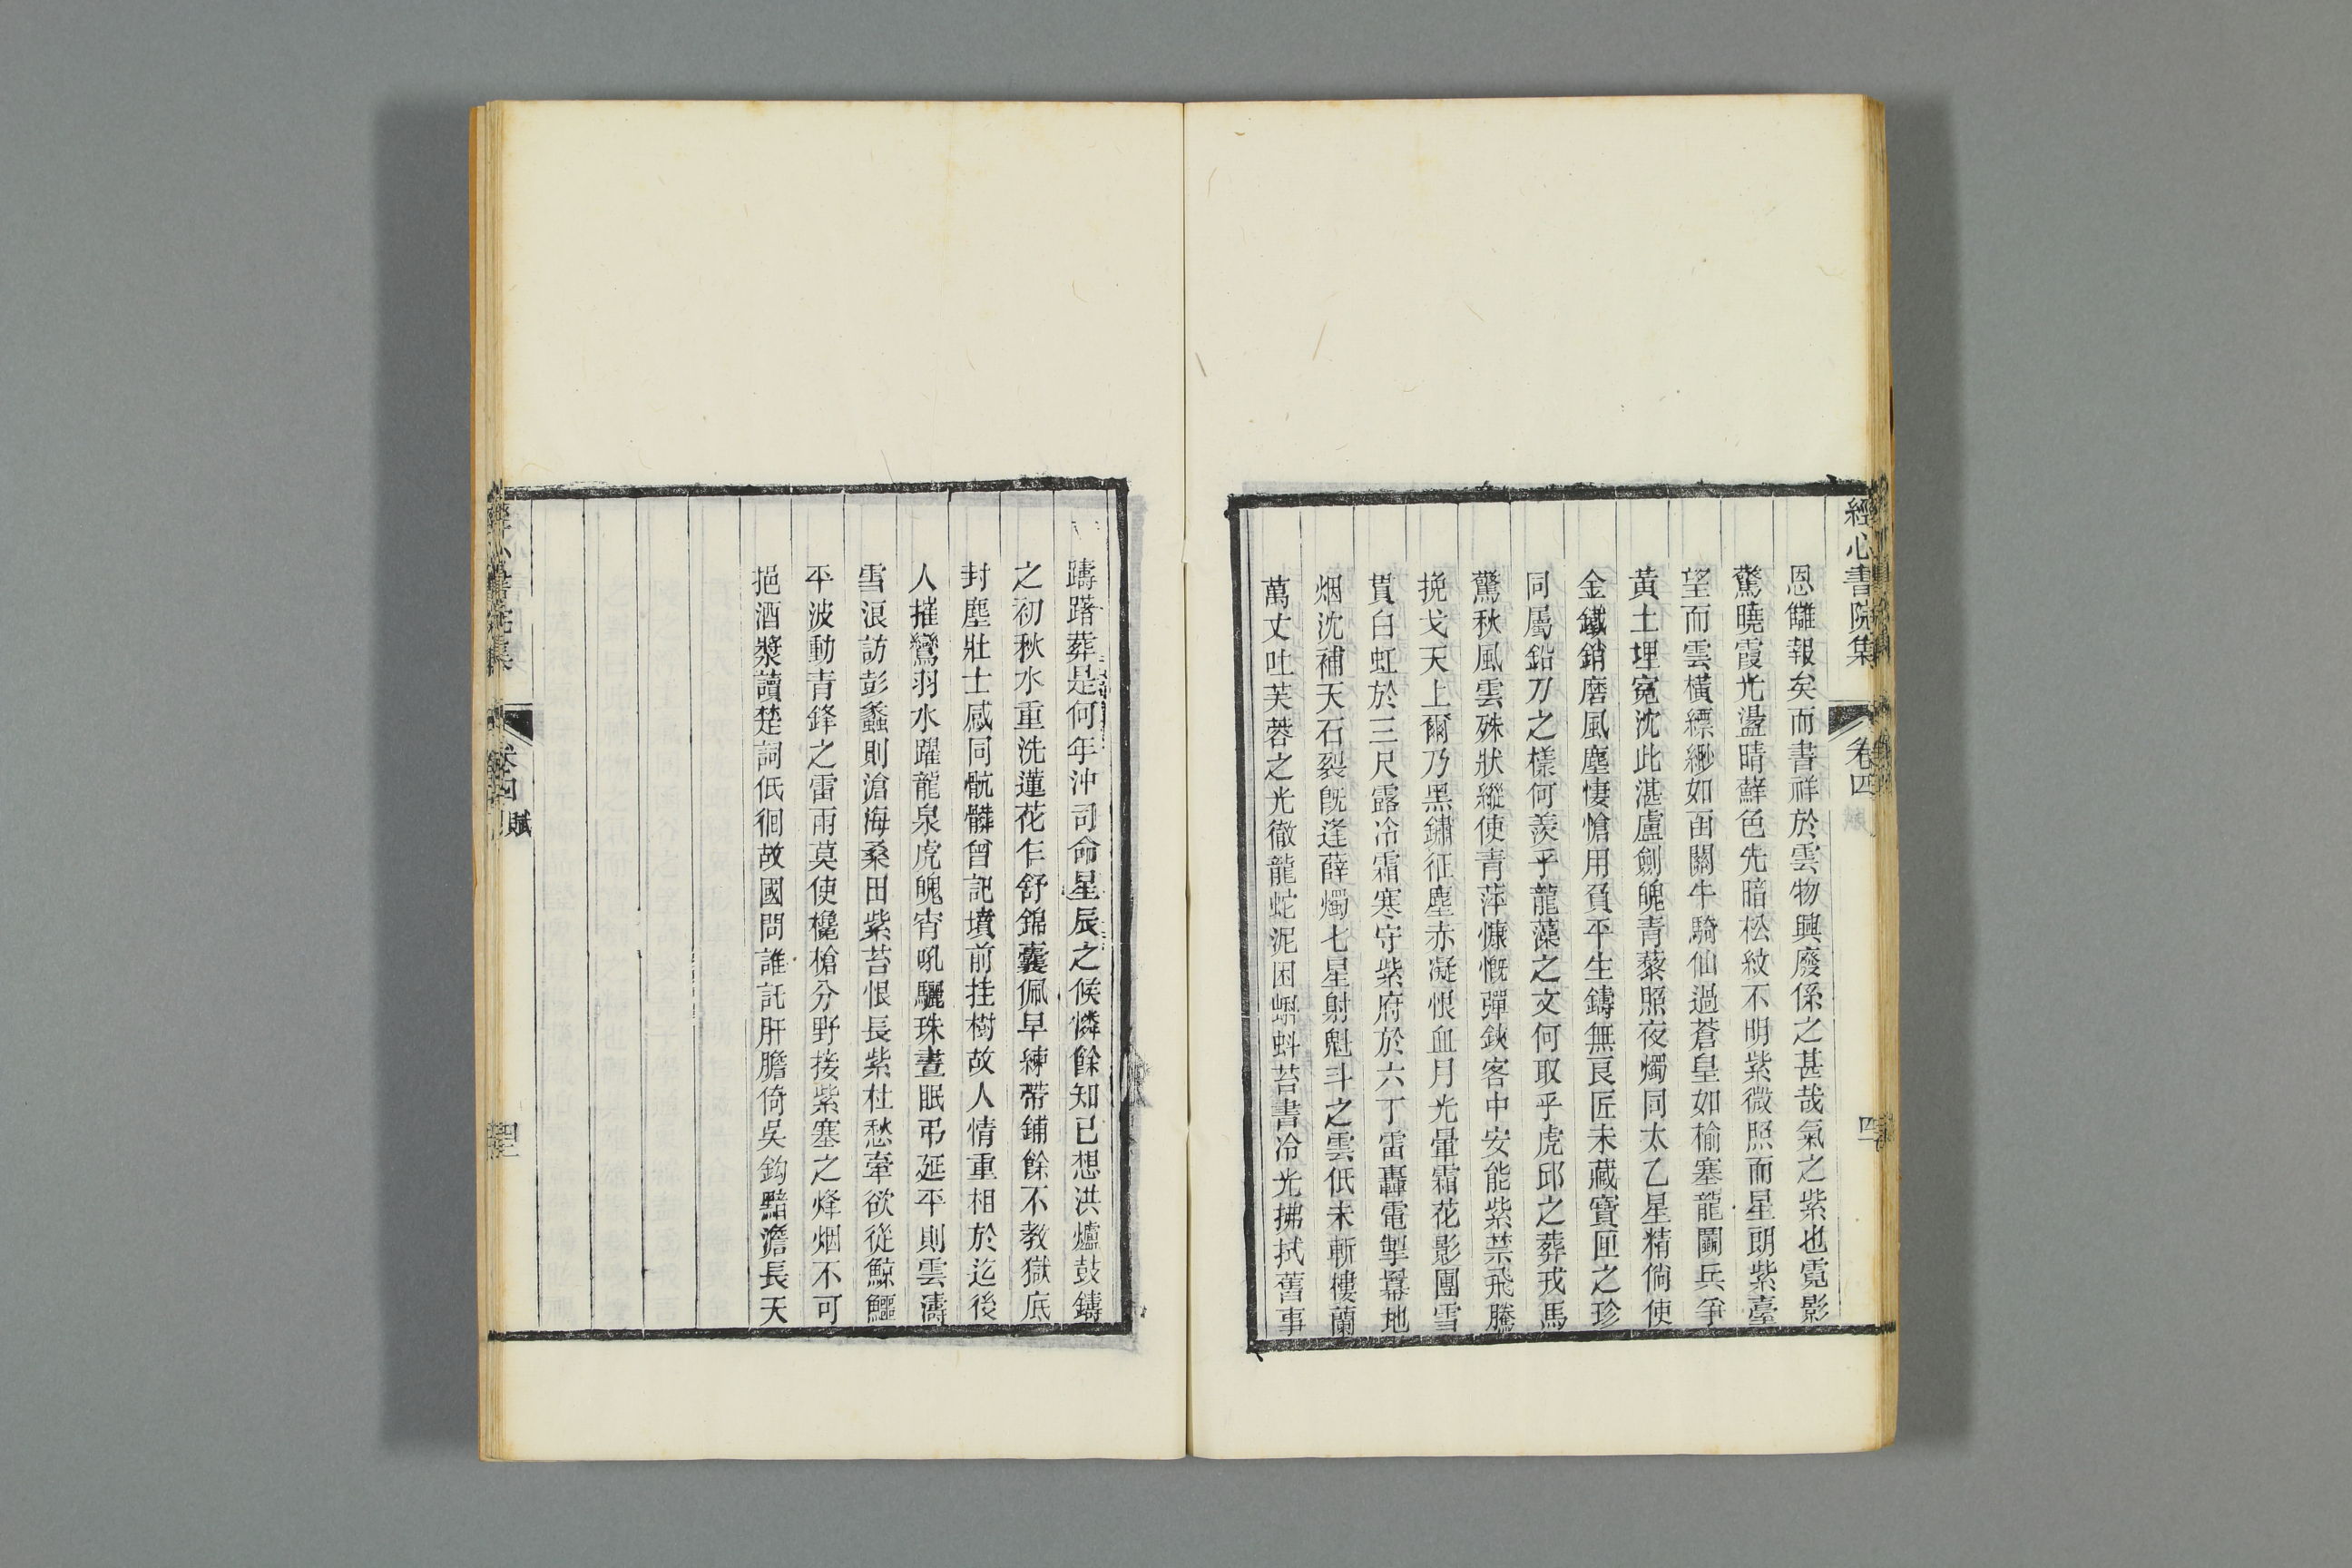 經心書院集
卷四
恩讎報矣而書祥於雲物興廢係之甚哉氣之紫也霓影
驚曉霞光盪晴蘚色先暗松紋不明紫微照而星朗紫臺
望而雲橫縹緲如函關牛騎仙過蒼皇如榆塞龍鬭兵爭
黃土埋寃沈此湛盧劍魄青藜照夜燭同太乙星精倘使
金鐵銷磨風塵悽愴用負平生鑄無良匠未藏寶匣之珍
同屬鉛刀之樣何羨乎龍藻之文何取乎虎邱之葬戎馬
驚秋風雲殊狀縱使青萍慷慨彈鋏客中安能紫禁飛騰
挽戈天上爾乃黑鏽征塵赤凝恨血月光暈霜花影團雪
貫白虹於三尺露冷霜寒守紫府於六丁雷轟電掣羃地
烟沈補天石裂旣逢薛燭七星射魁斗之雲低未斬樓蘭
萬丈吐芙蓉之光徹龍蛇泥困蝌蚪苔書冷光拂拭舊事
躊躇葬是何年沖司命星辰之候憐餘知已想洪爐鼓鑄
之初秋水重洗蓮花乍舒錦囊佩早練帶鋪餘不教獄底
封塵壯士感同骯髒曾記墳前挂樹故人情重相於迄後
人摧鸞羽水躍龍泉虎魄宵吼驪珠晝眠弔延平則雲濤
雪浪訪彭蠡則滄海桑田紫苔恨長紫杜愁牽欲從鯨鱷
平波動青鋒之雷雨莫使欃槍分野接紫塞之烽烟不可
挹酒漿讀楚詞低徊故國問誰託肝膽倚吳鈎黯澹長天
經心書院集
卷四
賦